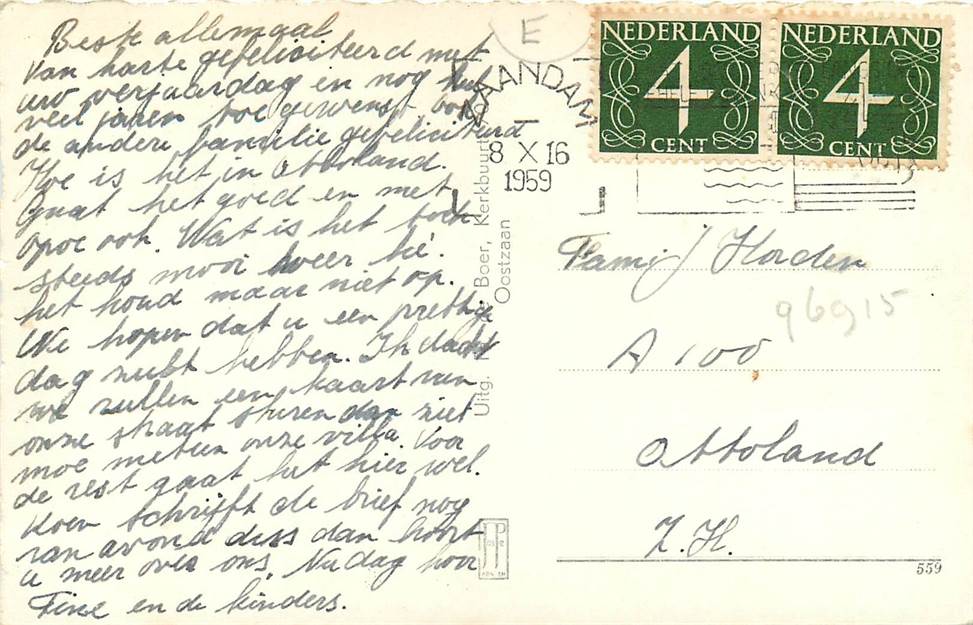 Beste allemaal
Van harte gefeliciteerd met
uw verjaardag en nog
veel jaren toe gewenst ook
de andere familie gefeliciteerd
Hoe is het in Ottoland.
Gaat het goed en met
opoe ook. Wat is het toch
steeds mooi weer hé.
het houd maar niet op.
We hopen dat u een prettige
dag zult hebben. Ik dacht
we zullen een kaart van
onze straat sturen dan ziet
moe meteen onze villa. Voor
de rest gaat het hier wel.
Koen schrijft de brief nog
van avond dus dan hoort
u meer over ons. Nu dag hoor
Fine en de kinders.
E
ZAANDAM
8 X 16
1959
NEDERLAND
4
CENT
NEDERLAND
4
CENT
Uitg. Boer, Kerkbuurt
Oostzaan
JP
Fami Horden
96915
A 100
Ottoland
Z.H.
559